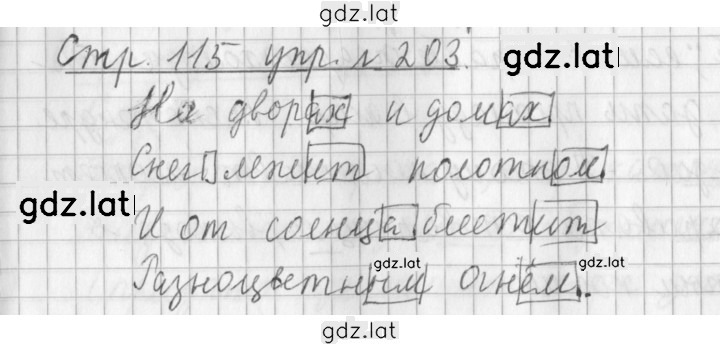 gdz.lat
Стр. 115 упр. № 203.
gdz.lat
На дворах и домах
Снег лежит полотном.
gdz.lat
И от солнца блестит
gdz.lat gdz.lat
Разноцветным огнём.
gdz.lat